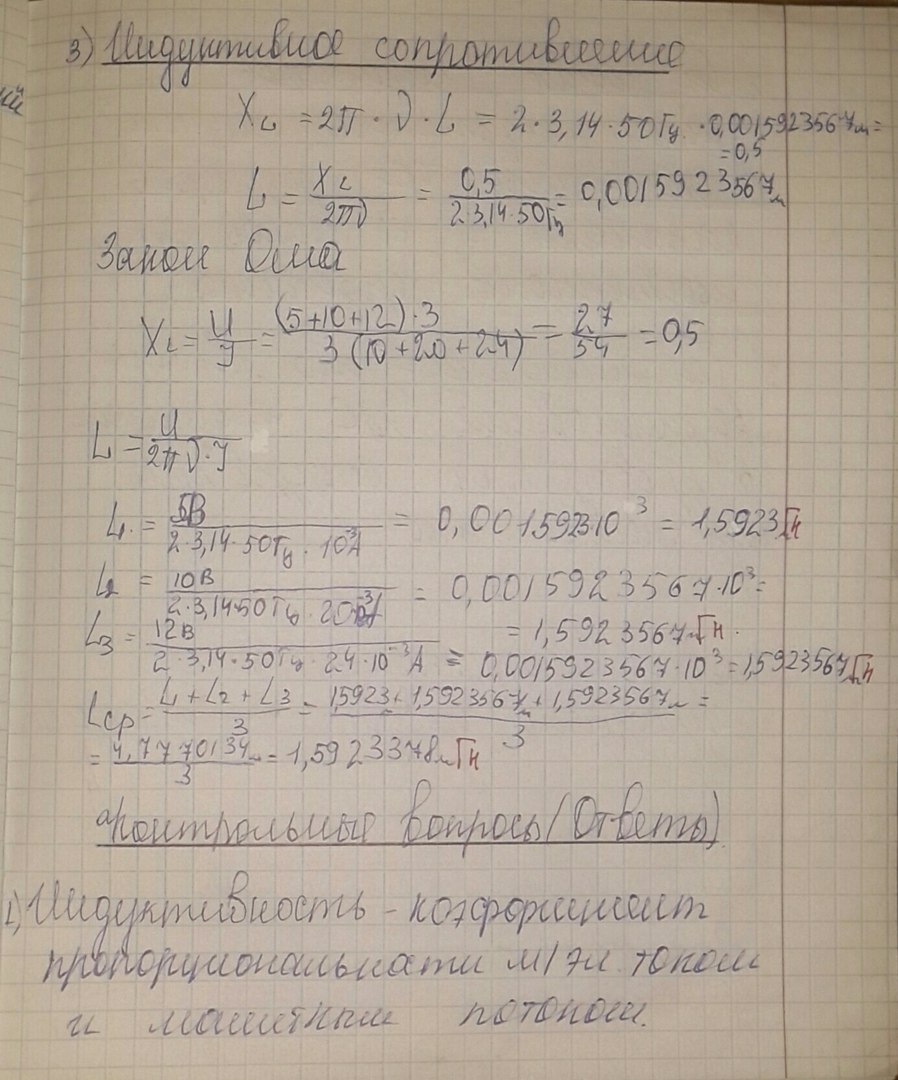 3) Индуктивное сопротивление
X_L = 2π · ν · L = 2 · 3,14 · 50Гц · 0,0015923567м =
= 0,5
L = X_L / 2πν = 0,5 / 2·3,14·50Гц = 0,0015923567м
Закон Ома
X_L = U / J = (5+10+12)·3 / 3(10+20+24) = 27 / 54 = 0,5
L = U / 2πν·J
L₁ = 5В / 2·3,14·50Гц·10⁻³А = 0,0015923·10³ = 1,5923 Гн
L₂ = 10В / 2·3,14·50Гц·20·10⁻³А = 0,0015923567·10³ =
= 1,5923567 Гн.
L₃ = 12В / 2·3,14·50Гц·24·10⁻³А = 0,0015923567·10³ = 1,5923567 Гн
Lср = L₁+L₂+L₃ / 3 = 1,5923+1,5923567м+1,5923567м / 3 =
= 4,7770134м / 3 = 1,5923378 Гн
Контрольные вопросы (Ответы)
1) Индуктивность - коэффициент
пропорциональности м/ эл. током
и магнитным потоком.